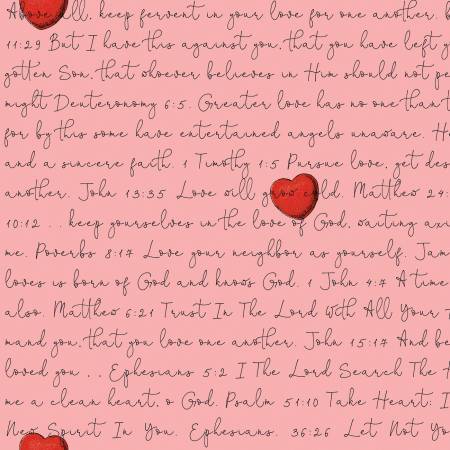 Above all, keep fervent in your love for one another. b
11:29 But I have this against you, that you have left y
gotten Son, that whoever believes in Him should not pe
might Deuteronomy 6:5. Greater love has no one than t
for by this some have entertained angels unaware. He
and a sincere faith. 1 Timothy 1:5 Pursue love, yet des
another. John 13:35 Love will grow cold. Matthew 24:
10:12 . . keep yourselves in the love of God, waiting axi
me. Poverbs 8:17 Love your neighbor as yourself. Jam
loves is born of God and knows God. 1 John 4:7 A time
also. Matthew 6:21 Trust In The Lord With All Your
mand you, that you love one another. John 15:17 And be
loved you . . Ephesians 5:2 I The Lord Search The
me a clean heart, o God. Psalm 51:10 Take Heart: I
New Spirit In You. Ephesians. 36:26 Let Not Yo